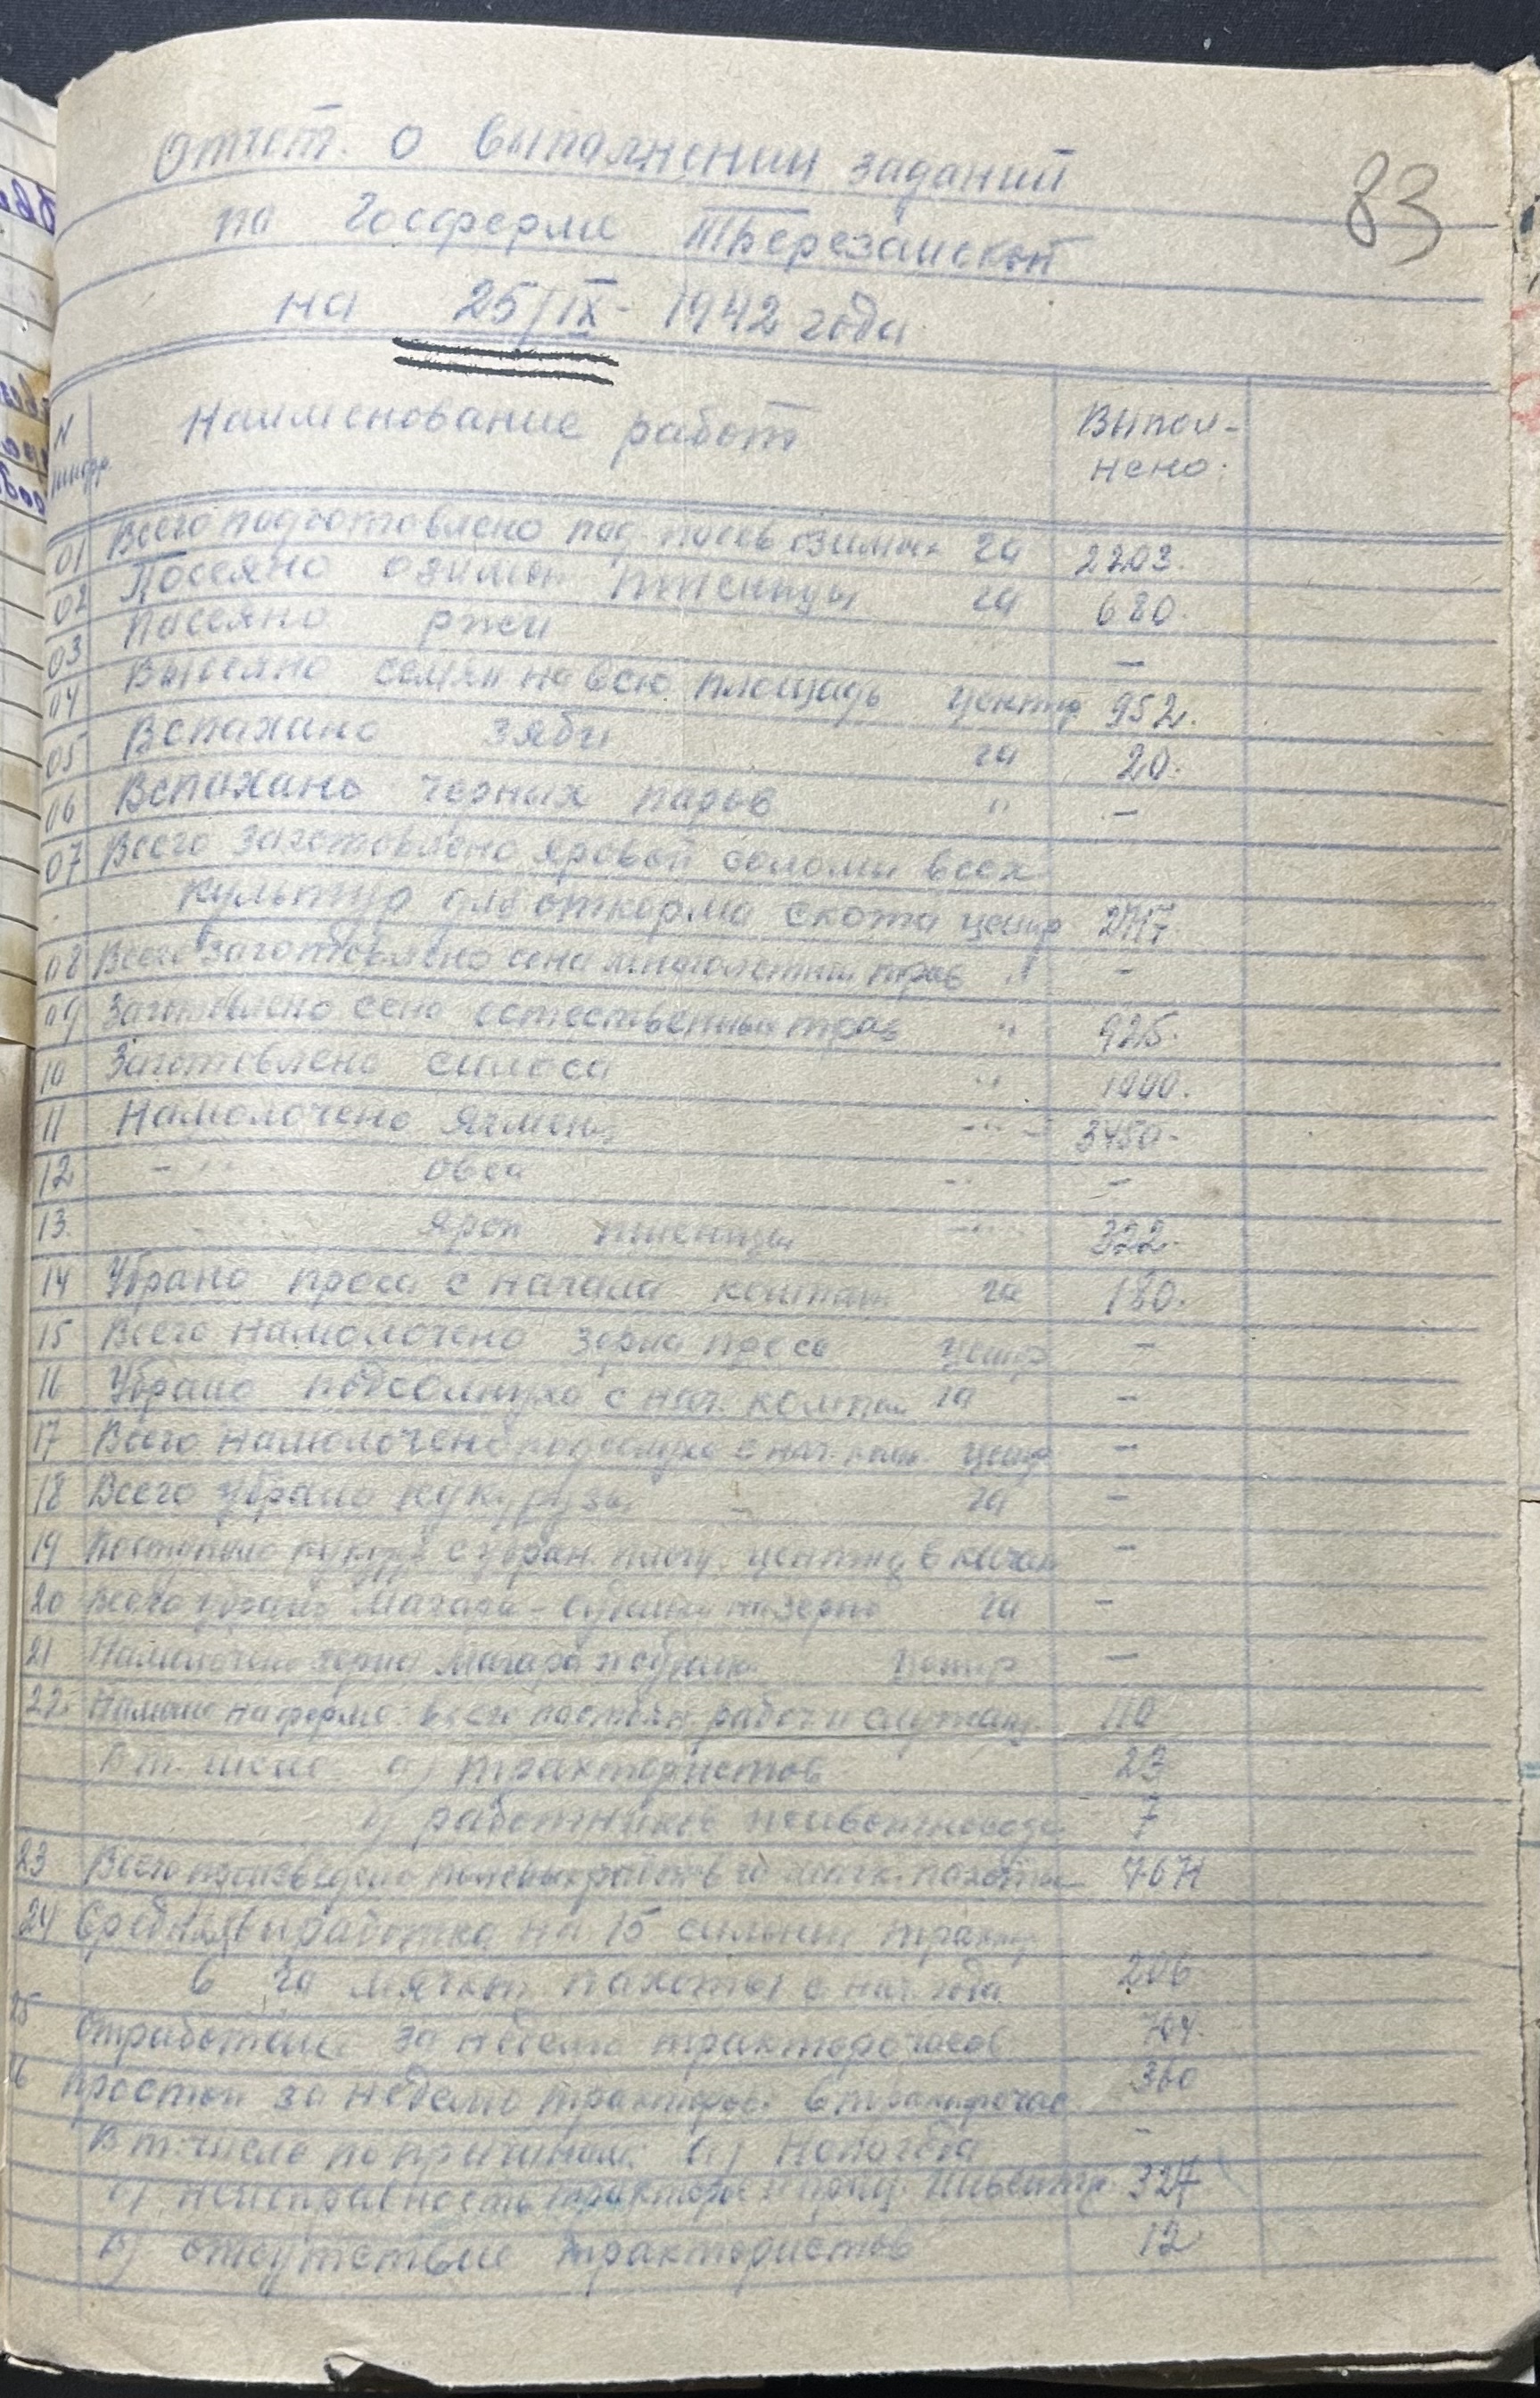 Отчет о выполнении заданий
83
по Госферме Терезанской
на 25/IX - 1942 года
N шифр. Наименование работ Выпол-
нено:
01 Всего подготовлено под посев озимых га 2203.
02 Посеяно озимой пшеницы га 680.
03 Посеяно ржи —
04 Высеяно семян на всю площадь центн. 952.
05 Вспахано зяби га 20.
06 Вспахано черных паров " —
07 Всего заготовлено яровой соломы всех
культур для откорма скота центр
08 Всего заготовлено сена многолетних трав " -
09 Заготовлено сена естественных трав " 925.
10 Заготовлено силоса " 1000.
11 Намолочено ячменя -"- 3450.
12 - " овса -"- -
13. яров пшеницы -"- 322.
14 Убрано проса с начала кампан. га 180.
15 Всего намолочено зерна проса центр -
16 Убрано подсолнуха с нач. кампан га -
17 Всего намолочено подсолнуха с нач. камп. центр -
18 Всего убрано кукурузы га -
19 Поступило кукуруз с убран. площ. центнер в качан -
20 Всего убрано Магара - суданки на зерно га -
21 Намолочено зерна Магара и суданк. центр —
22. на ферме: всего постоян. рабоч. и служащ. 110
В т. числе а) трактористов 23
б) работников животновода 7
23 Всего произведено полевых работ в га мягк. пахоты
24 Средняя выработка на 15 сильный трактор
в га мягкой пахоты с нач. года 206
25 Отработано за неделю тракторочасов 704.
26 Простой за неделю тракторов в тракторочас. 360
В т. числе по причинам: а) Непогода -
б) неисправность трактора и приц. инвентар. 327
в) отсутствие трактористов 12